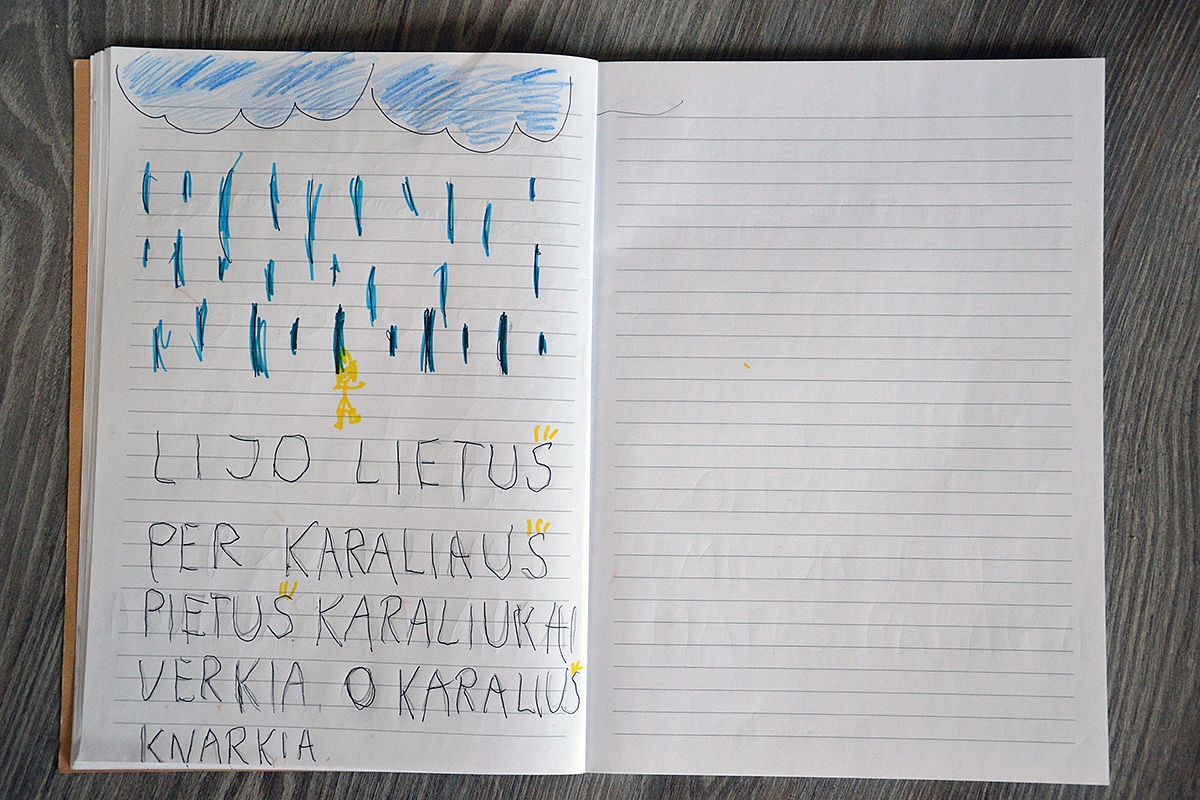 LIJO LIETUS
PER KARALIAUS
PIETUS KARALIUKAI
VERKIA, O KARALIUS
KNARKIA